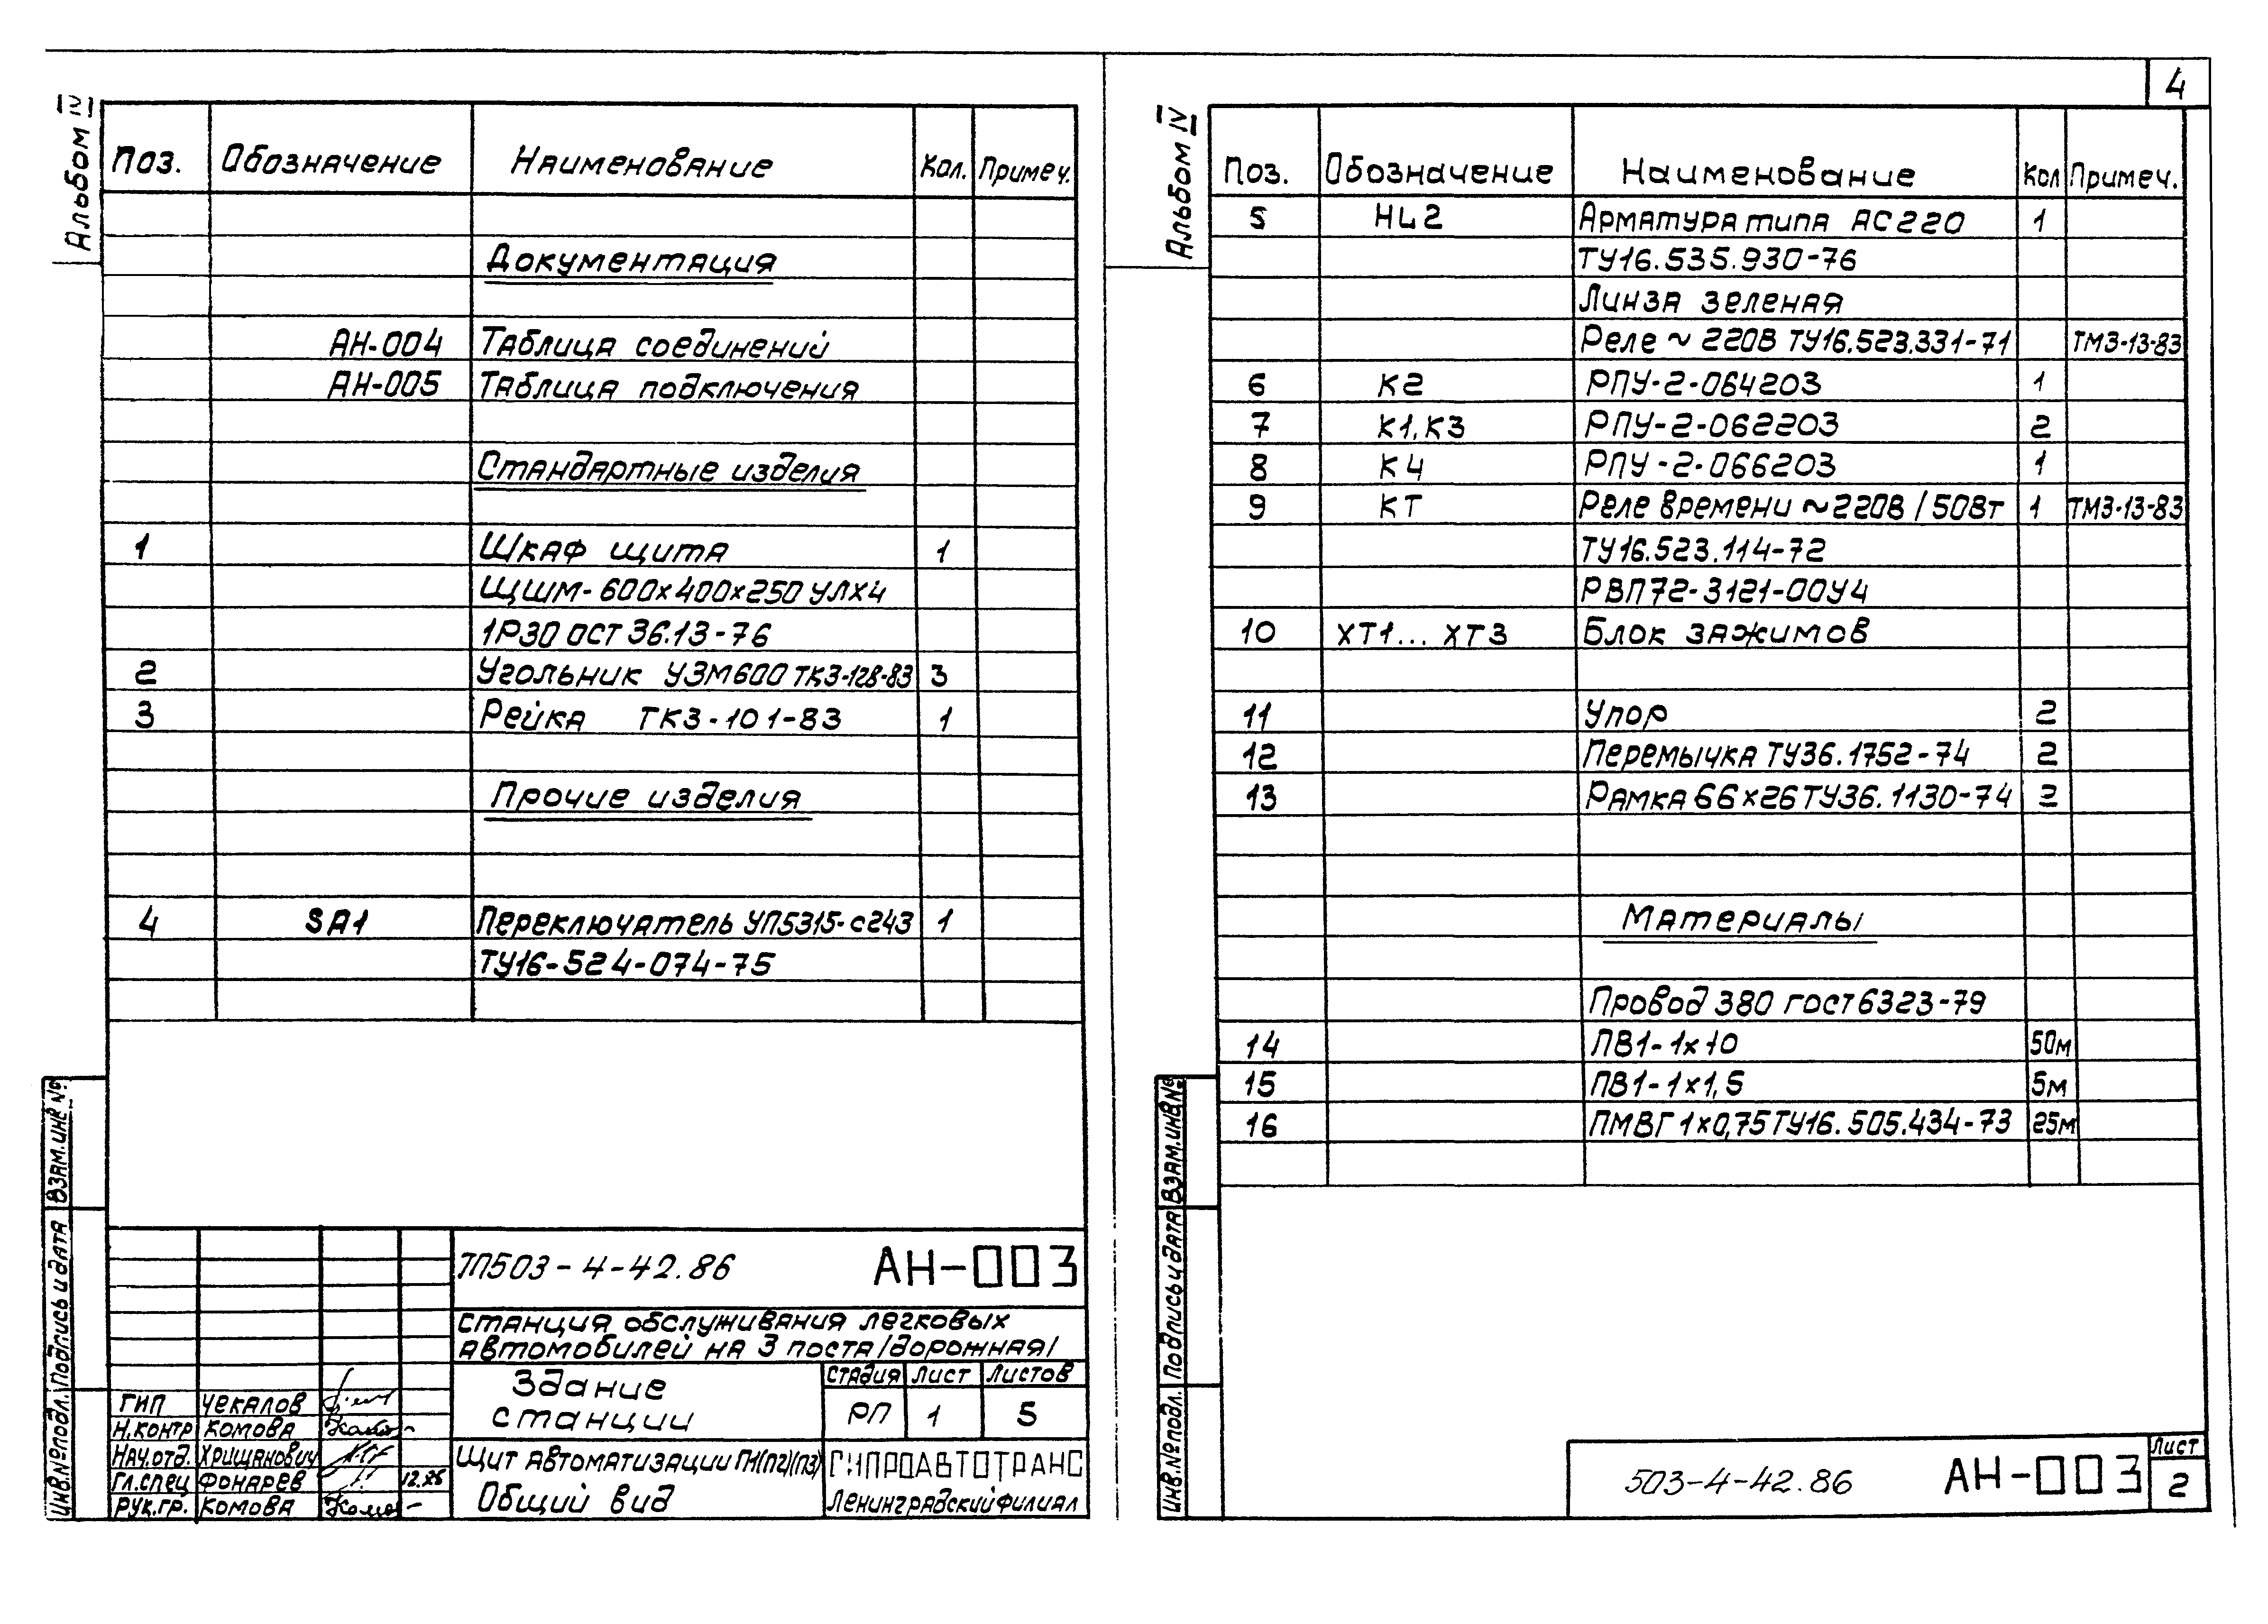 4
Альбом IV
Поз. Обозначение Наименование Кол. Примеч.
Документация
АН-004 Таблица соединений
АН-005 Таблица подключения
Стандартные изделия
1 Шкаф щита 1
ЩШМ-600х400х250 УЛХ4
1Р30 ОСТ 36.13-76
2 Угольник УЗМ600 ТКЗ-128-83 3
3 Рейка ТКЗ-101-83 1
Прочие изделия
4 SA1 Переключатель УП5315-С243 1
ТУ16-524-074-75
Взам.инв №
Подпись и дата
Инв.№подл.
ТП503-4-42.86 АН-003
Станция обслуживания легковых
автомобилей на 3 поста/дорожная/
Здание
станции
Стадия Лист Листов
РП 1 5
ГИП Чекалов
Н.контр Комова
Нач.отд. Хрищанович
Гл.спец Фонарев 12.86
Рук.гр. Комова
Щит автоматизации П1(П2)(П3)
Общий вид
ГИПРОАВТОТРАНС
Ленинградский филиал
Альбом IV
Поз. Обозначение Наименование Кол Примеч.
5 HL2 Арматура типа АС220 1
ТУ16.535.930-76
Линза зеленая
Реле ~ 220В ТУ16.523.331-71 ТМ3-13-83
6 К2 РПУ-2-064203 1
7 К1, К3 РПУ-2-062203 2
8 К4 РПУ-2-066203 1
9 КТ Реле времени ~220В/50Вт 1 ТМ3-13-83
ТУ16.523.114-72
РВП72-3121-00У4
10 ХТ1... ХТ3 Блок зажимов
11 Упор 2
12 Перемычка ТУ36.1752-74 2
13 Рамка 66х26 ТУ36.1130-74 2
Материалы
Провод 380 ГОСТ6323-79
14 ПВ1-1х10 50м
15 ПВ1-1х1,5 5м
16 ПМВГ 1х0,75 ТУ16.505.434-73 25м
Взам.инв.№
Подпись и дата
Инв.№подл.
503-4-42.86 АН-003
Лист
2